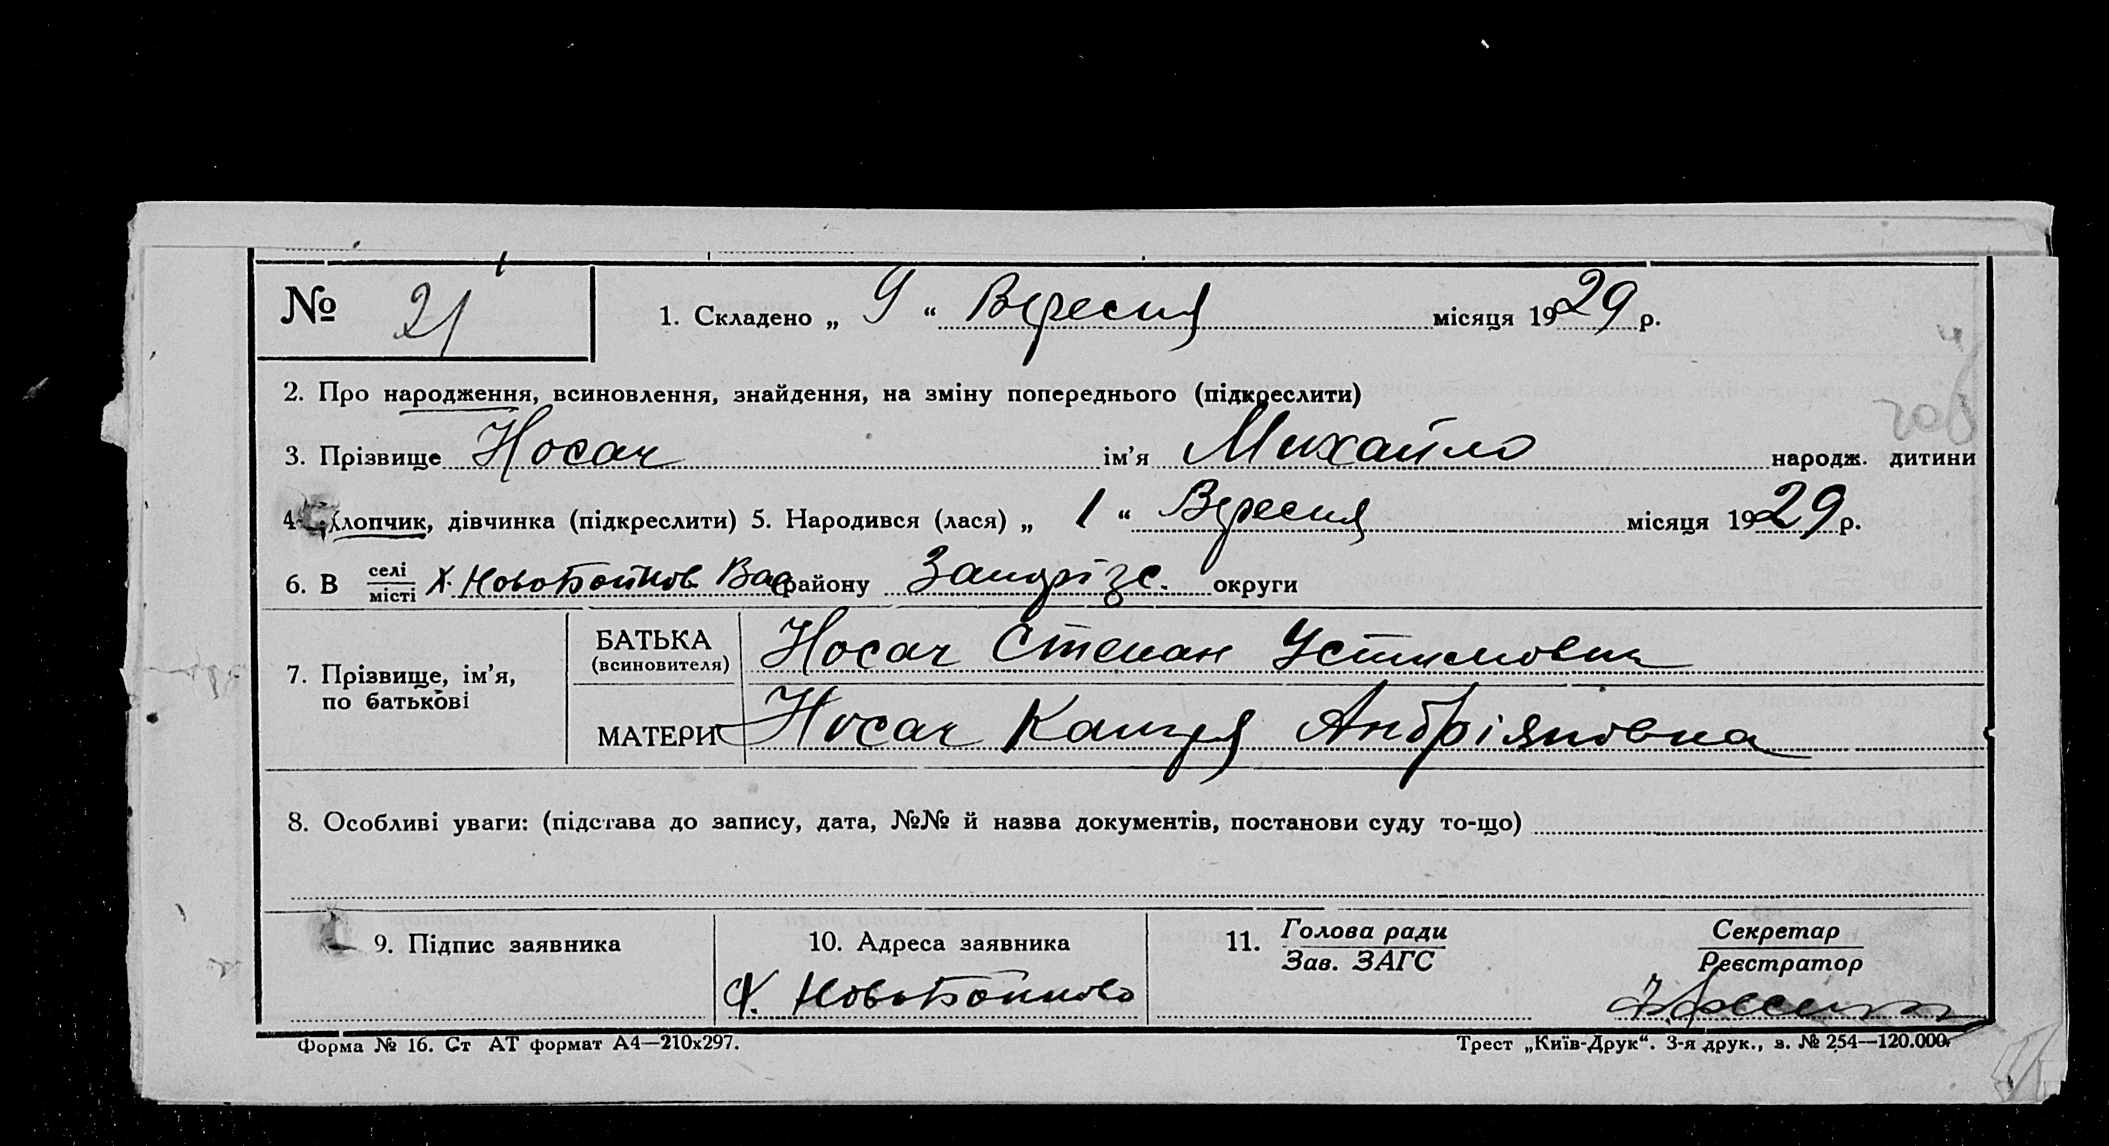 № 21
1. Складено „ 9 “ Вересня місяця 1929 р.
2. Про народження, всиновлення, знайдення, на зміну попереднього (підкреслити)
3. Прізвище Носач ім’я Михайло народж. дитини
4. Хлопчик, дівчинка (підкреслити) 5. Народився (лася) „ 1 “ Вересня місяця 1929 р.
6. В селі місті Х. Новобойков. Вас району Запоріз. округи
7. Прізвище, ім’я, по батькові
БАТЬКА (всиновителя) Носач Степан Устимович
МАТЕРИ Носач Андріяновна
8. Особливі уваги: (підстава до запису, дата, №№ й назва документів, постанови суду то-що)
9. Підпис заявника
10. Адреса заявника
Х. Новобойково
11. Голова ради Зав. ЗАГС
Секретар Реєстратор
Форма № 16. Ст АТ формат А4—210х297.
Трест „Київ-Друк“. 3-я друк., з. № 254—120.000